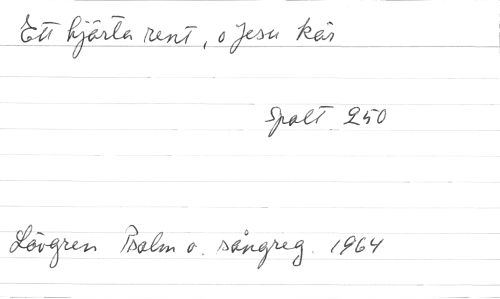 Ett hjärta rent, o Jesu kär
Spalt 250
Lövgren Psalm o. sångreg. 1964